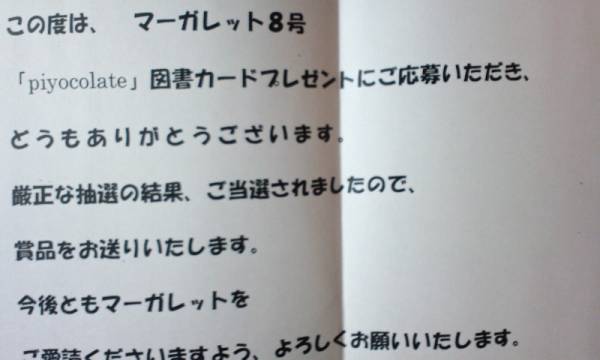 この度は、　マーガレット８号
「piyocolate」図書カードプレゼントにご応募いただき、
どうもありがとうございます。
厳正な抽選の結果、ご当選されましたので、
賞品をお送りいたします。
今後ともマーガレットを
ご愛読くださいますよう、よろしくお願いいたします。